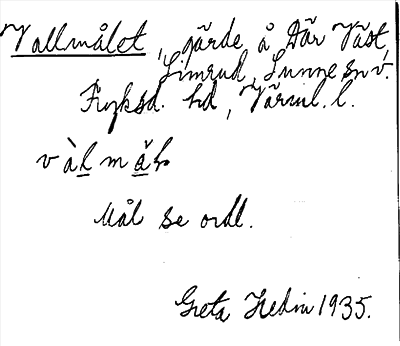 Vallmålet, gärde å Där Väst,
Simrud, Sunne sn v.
Fryksd. hd, Värml. l.
vàlmål
Mål se ordl.
Greta Hedin 1935.